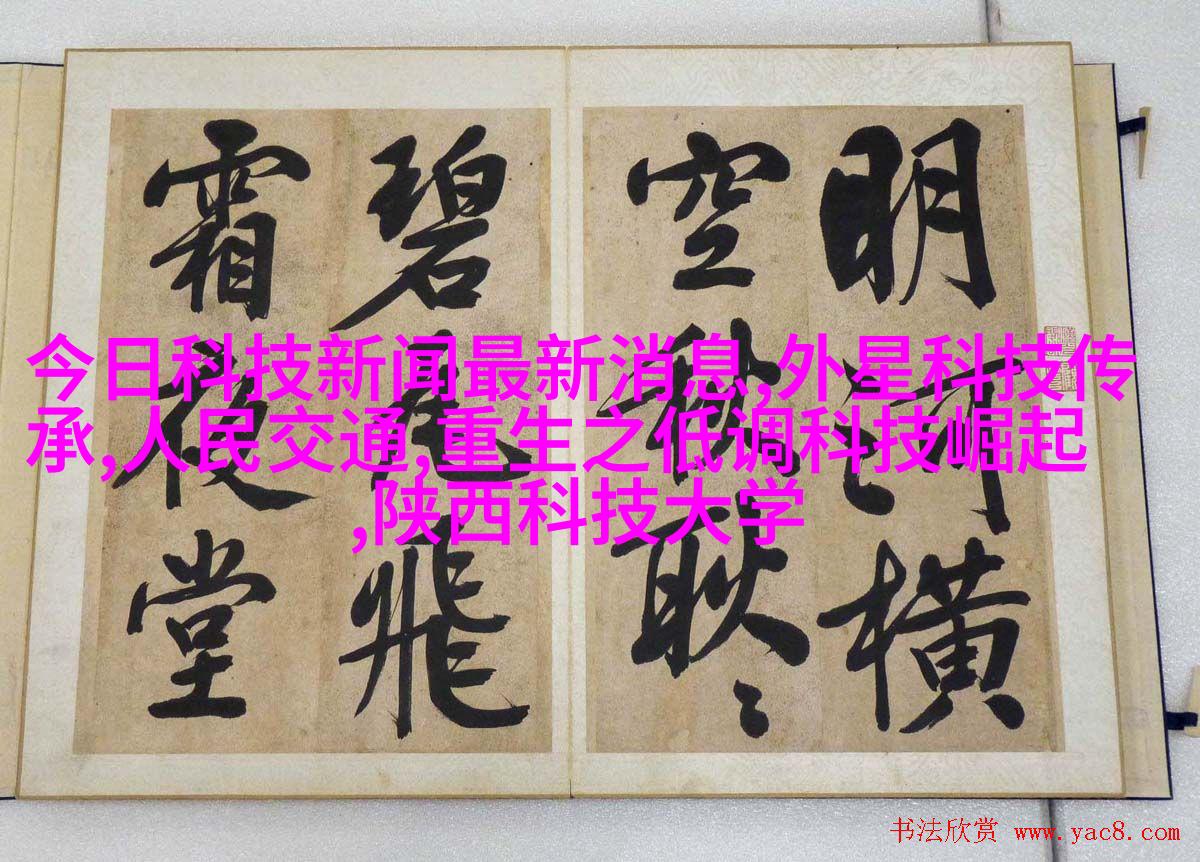 明河横
空秋耿々
碧瓦飛
霜夜堂
今日科技新闻最新消息,外星科技传
承,人民交通,重生之低调科技崛起
,陕西科技大学
书法欣赏 www.yac8.com